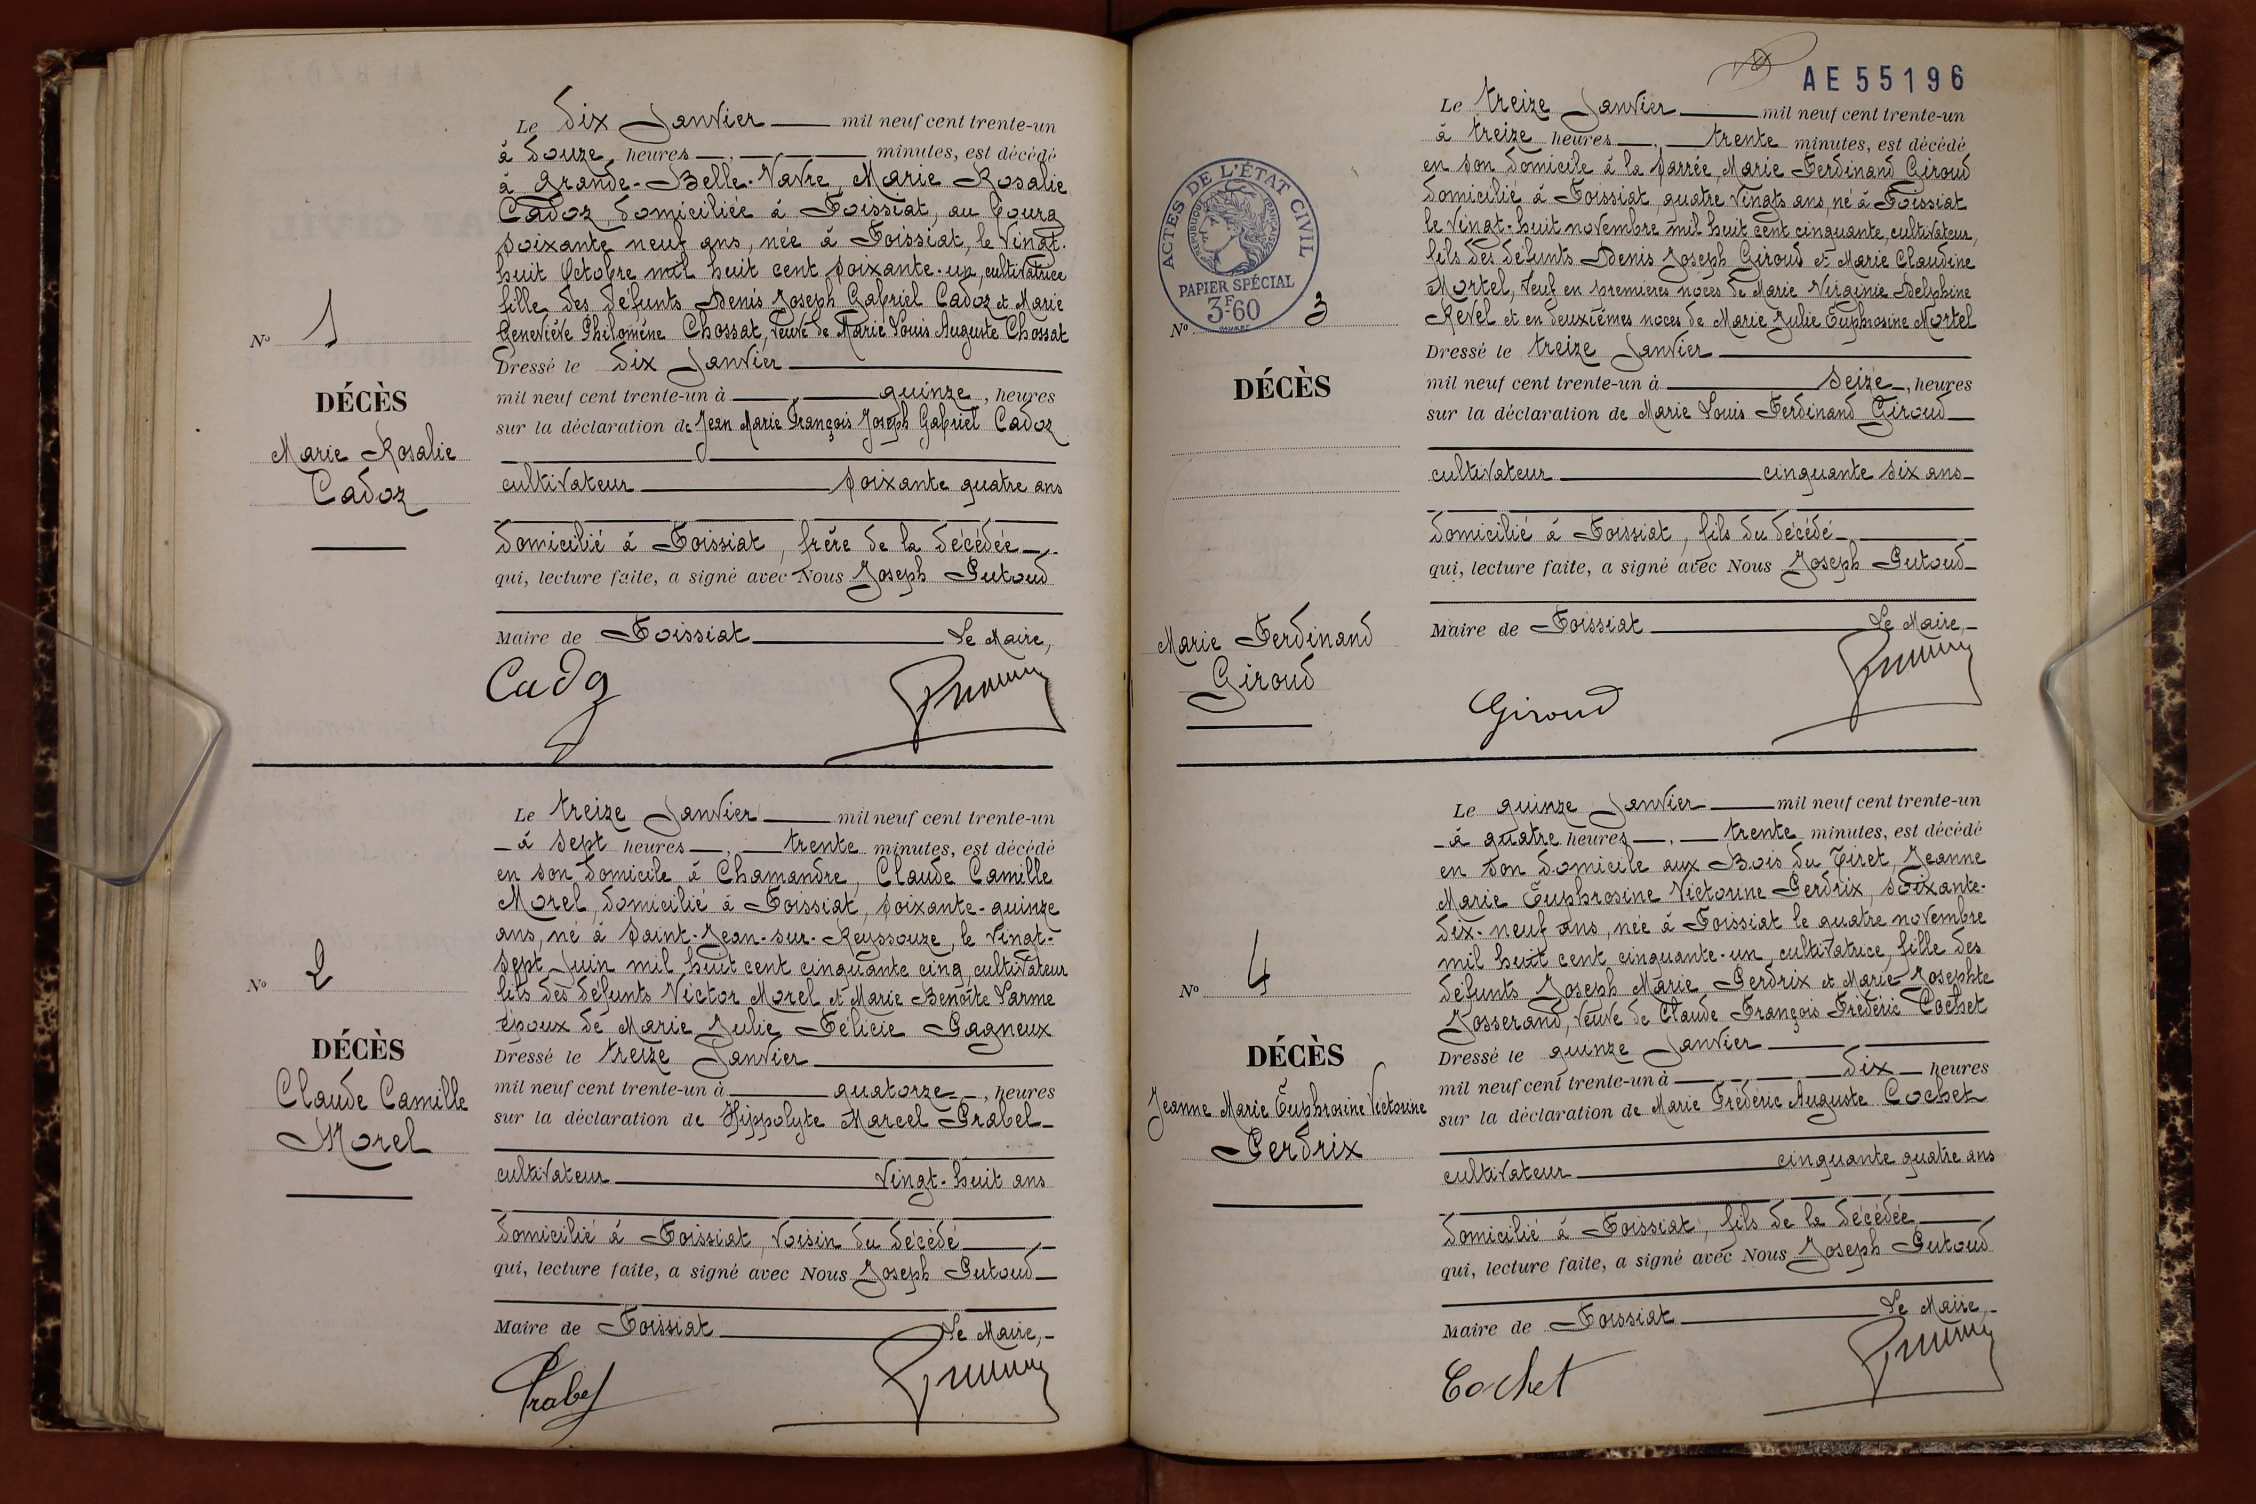 Le dix Janvier mil neuf cent trente-un
à douze heures minutes, est décédé
à Grande-Belle-Vavre, Marie Rosalie
Cadoz, domiciliée à Foissiat, au bourg
soixante neuf ans, née à Foissiat, le vingt-
huit Octobre mil huit cent soixante-un, cultivatrice
fille des défunts Denis Joseph Gabriel Cadoz et Marie
Geneviève Philomène Chossat, veuve de Marie Louis Auguste Chossat
Dressé le dix Janvier
mil neuf cent trente-un à quinze, heures
sur la déclaration de Jean Marie François Joseph Gabriel Cadoz
cultivateur soixante quatre ans
domicilié à Foissiat, frère de la décédée
qui, lecture faite, a signé avec Nous Joseph Putoud
Maire de Foissiat Le Maire,
Cadoz
N° 1
DÉCÈS
Marie Rosalie
Cadoz
Le treize Janvier mil neuf cent trente-un
à sept heures trente minutes, est décédé
en son domicile à Chamandre, Claude Camille
Morel, domicilié à Foissiat, soixante-quinze
ans, né à Saint-Jean-sur-Reyssouze, le vingt-
sept Juin mil huit cent cinquante cinq, cultivateur
fils des défunts Victor Morel et Marie Benoîte Parme
époux de Marie Julie Félicie Gagneux
Dressé le treize Janvier
mil neuf cent trente-un à quatorze, heures
sur la déclaration de Hippolyte Marcel Prabel
cultivateur vingt-huit ans
domicilié à Foissiat, voisin du décédé
qui, lecture faite, a signé avec Nous Joseph Putoud
Maire de Foissiat Le Maire,
Prabel
N° 2
DÉCÈS
Claude Camille
Morel
AE 55196
Le treize Janvier mil neuf cent trente-un
à treize heures trente minutes, est décédé
en son domicile à la Sarrée, Marie Ferdinand Giroud
domicilié à Foissiat, quatre vingts ans, né à Foissiat
le vingt-huit novembre mil huit cent cinquante, cultivateur,
fils des défunts Denis Joseph Giroud et Marie Claudine
Mortel, veuf en premières noces de Marie Virginie Delphine
Revel et en deuxièmes noces de Marie Julie Euphrosine Mortel
Dressé le treize Janvier
mil neuf cent trente-un à seize, heures
sur la déclaration de Marie Louis Ferdinand Giroud
cultivateur cinquante six ans
domicilié à Foissiat, fils du décédé
qui, lecture faite, a signé avec Nous Joseph Putoud
Maire de Foissiat Le Maire,
Giroud
ACTES DE L'ÉTAT CIVIL
RÉPUBLIQUE FRANÇAISE
PAPIER SPÉCIAL
3F60
N° 3
DÉCÈS
Marie Ferdinand
Giroud
Le quinze Janvier mil neuf cent trente-un
à quatre heures trente minutes, est décédé
en son domicile aux Bois du Tiret, Jeanne
Marie Euphrosine Victorine Perdrix, soixante-
dix-neuf ans, née à Foissiat le quatre novembre
mil huit cent cinquante-un, cultivatrice, fille des
défunts Joseph Marie Perdrix et Marie Josephte
Josserand, veuve de Claude François Frédéric Cochet
Dressé le quinze Janvier
mil neuf cent trente-un à dix heures
sur la déclaration de Marie Frédéric Auguste Cochet
cultivateur cinquante quatre ans
domicilié à Foissiat, fils de la décédée
qui, lecture faite, a signé avec Nous Joseph Putoud
Maire de Foissiat Le Maire,
Cochet
N° 4
DÉCÈS
Jeanne Marie Euphrosine Victorine
Perdrix